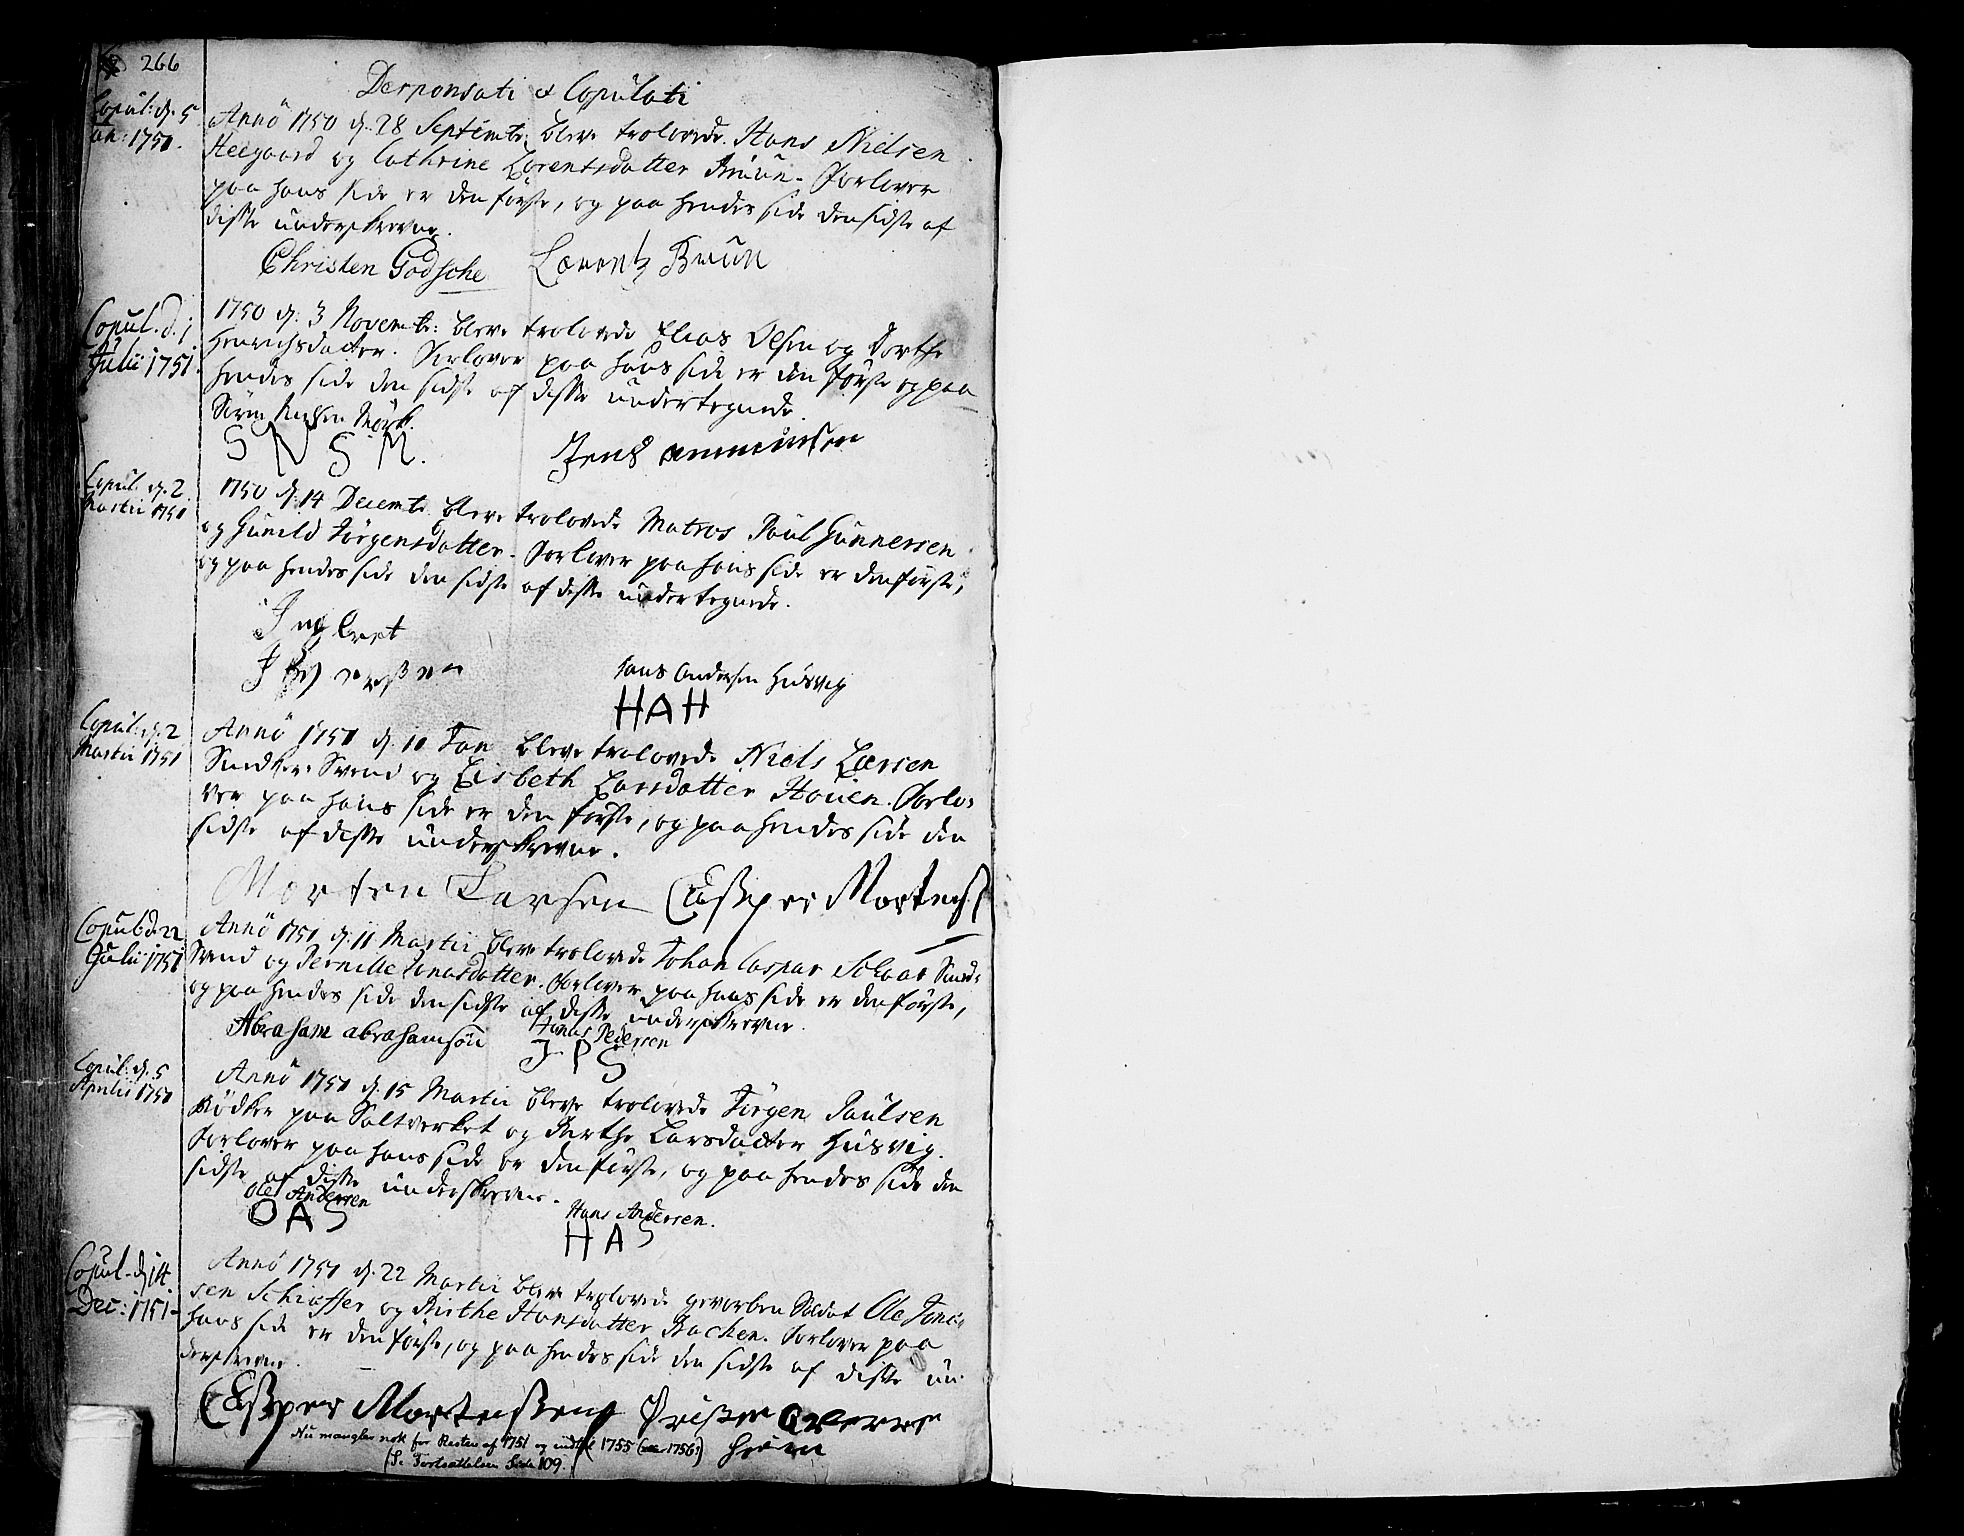 266
Desponsati et Copulati
Copul: d. 5
Jan: 1751.
Anno 1750 d. 28 Septembr: bleve trolovede Hans Nielsen
Heegaard og Cathrine Lorentsdatter Bruun. Forlover
paa hans side er den første, og paa hendes side den sidste af
disse underskrevne.
Christen Godsche Lorentz Bruun
Copul. d. 1
Julii 1751.
1750 d. 3 Novembr: bleve trolovede Elias Olsen og Dorthe
Henrichsdatter. Forlover paa hans side er den første og paa
hendes side den sidste af disse undertegnede.
Sören Nielsen Mörk.
S N S M. Jens
Copul. d. 2
Martii 1751
1750 d. 14 Decembr. bleve trolovede Matros Paul Gunnersen
og Gunild Jörgensdatter. Forlover paa hans side er den første,
og paa hendes side den sidste af disse undertegnede.
Ingbret
Hans Andersen Husvig
HAH
Copul: d. 2
Martii 1751
Anno 1751 d. 11 Jan bleve trolovede Niels Larsen
Smedker Svend og Lisbeth Larsdatter Houen. Forlo-
ver paa hans side er den første, og paa hendes side den
sidste af disse underskrevne.
Morten Larsen Casper Mortens
Copul d. 22
Julii 1751
Anno 1751 d. 11 Martii bleve trolovede Johan Caspar Schaar Smede
Svend og Pernille Jonasdatter. Forlover paa hans side er den første,
og paa hendes side den sidste af disse underskrevne.
Abraham abrahamsön Jonas Pedersen
J P S
Copul: d. 5
Aprilii 1751
Anno 1751 d. 15 Martii bleve trolovede Jörgen Paulsen
Bödker paa Saltverket og Berthe Larsdatter Husvig.
Forlover paa hans side er den første, og paa hendes side den
sidste af disse underskrevne.
Ole Andersen
O A S
Hans Andersen.
H A S
Copul. d. 14
Dec: 1751.
Anno 1751 d. 22 Martii bleve trolovede gevorben Soldat Ole Jone-
sen Schieffer og Birthe Hansdatter Backen. Forlover paa
hans side er den første, og paa hendes side den sidste af disse un-
derskrevne.
Casper Mortensen
Nu mangler nok for Resten af 1751 og indtil 1755 (1756?)
(Se Fortsættelsen Side 109.)